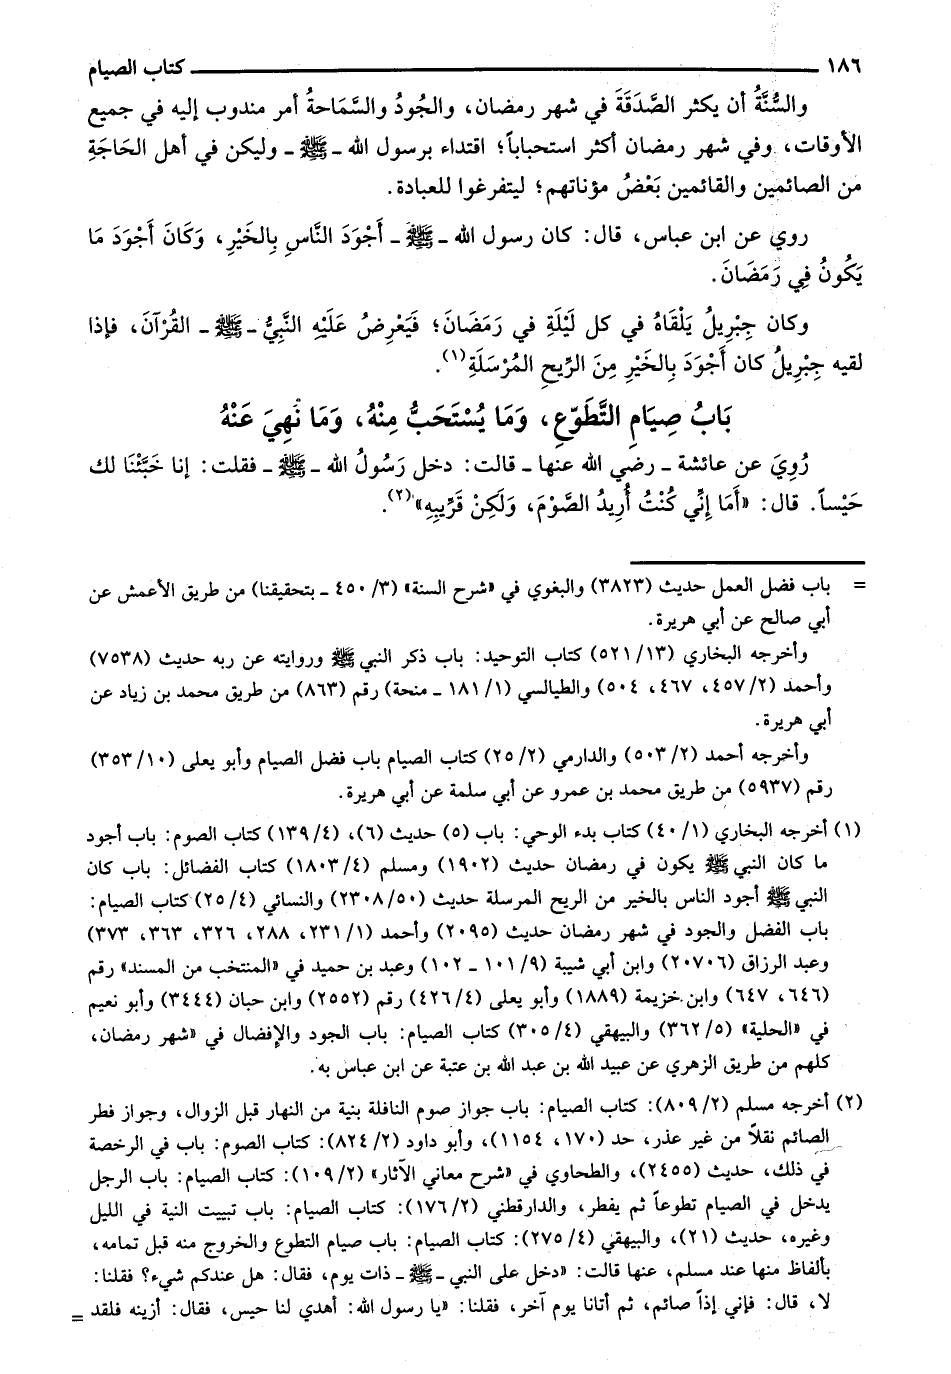 ١٨٦ ــــــــــــــــــــ كتاب الصيام
والسُّنَّةُ أن يكثر الصَّدَقَةَ في شهر رمضان، والجُودُ والسَّمَاحةُ أمر مندوب إليه في جميع
الأوقات، وفي شهر رمضان أكثر استحباباً؛ اقتداء برسول الله ـ ﷺ ـ وليكن في أهل الحَاجَةِ
من الصائمين والقائمين بَعْضُ مؤناتهم؛ ليتفرغوا للعبادة.
روي عن ابن عباس، قال: كان رسول الله ـ ﷺ ـ أَجْوَدَ النَّاسِ بِالخَيْرِ، وَكَانَ أَجْوَدَ مَا
يَكُونُ فِي رَمَضَانَ.
وكان جِبْرِيلُ يَلْقَاهُ في كل لَيْلَةِ في رَمَضَانَ؛ فَيَعْرِضُ عَلَيْهِ النَّبِيُّ ـ ﷺ ـ القُرْآنَ، فإذا
لقيه جِبْرِيلُ كان أَجْوَدَ بِالخَيْرِ مِنَ الرِّيحِ المُرْسَلَةِ(١).
بَابُ صِيَامِ التَّطَوّعِ، وَمَا يُسْتَحَبُّ مِنْهُ، وَمَا نُهِيَ عَنْهُ
رُوِيَ عن عائشة ـ رضي الله عنها ـ قالت: دخل رَسُولُ الله ـ ﷺ ـ فقلت: إنا خَبَّئْنَا لك
حَيْساً. قال: «أَمَا إِنِّي كُنْتُ أُرِيدُ الصَّوْمَ، وَلَكِنْ قَرِّبِيهِ»(٢).
= باب فضل العمل حديث (٣٨٢٣) والبغوي في «شرح السنة» (٣/ ٤٥٠ ـ بتحقيقنا) من طريق الأعمش عن
أبي صالح عن أبي هريرة.
وأخرجه البخاري (١٣/ ٥٢١) كتاب التوحيد: باب ذكر النبي ﷺ وروايته عن ربه حديث (٧٥٣٨)
وأحمد (٢/ ٤٥٧، ٤٦٧، ٥٠٤) والطيالسي (١/ ١٨١ ـ منحة) رقم (٨٦٣) من طريق محمد بن زياد عن
أبي هريرة.
وأخرجه أحمد (٢/ ٥٠٣) والدارمي (٢/ ٢٥) كتاب الصيام باب فضل الصيام وأبو يعلى (١٠/ ٣٥٣)
رقم (٥٩٣٧) من طريق محمد بن عمرو عن أبي سلمة عن أبي هريرة.
(١) أخرجه البخاري (١/ ٤٠) كتاب بدء الوحي: باب (٥) حديث (٦)، (٤/ ١٣٩) كتاب الصوم: باب أجود
ما كان النبي ﷺ يكون في رمضان حديث (١٩٠٢) ومسلم (٤/ ١٨٠٣) كتاب الفضائل: باب كان
النبي ﷺ أجود الناس بالخير من الريح المرسلة حديث (٥٠/ ٢٣٠٨) والنسائي (٤/ ٢٥) كتاب الصيام:
باب الفضل والجود في شهر رمضان حديث (٢٠٩٥) وأحمد (١/ ٢٣١، ٢٨٨، ٣٢٦، ٣٦٣، ٣٧٣)
وعبد الرزاق (٢٠٧٠٦) وابن أبي شيبة (٩/ ١٠١ ـ ١٠٢) وعبد بن حميد في «المنتخب من المسند» رقم
(٦٤٦، ٦٤٧) وابن خزيمة (١٨٨٩) وأبو يعلى (٤/ ٤٢٦) رقم (٢٥٥٢) وابن حبان (٣٤٤٤) وأبو نعيم
في «الحلية» (٥/ ٣٦٢) والبيهقي (٤/ ٣٠٥) كتاب الصيام: باب الجود والإفضال في «شهر رمضان،
كلهم من طريق الزهري عن عبيد الله بن عبد الله بن عتبة عن ابن عباس به.
(٢) أخرجه مسلم (٢/ ٨٠٩): كتاب الصيام: باب جواز صوم النافلة بنية من النهار قبل الزوال، وجواز فطر
الصائم نقلاً من غير عذر، حد (١٧٠، ١١٥٤)، وأبو داود (٢/ ٨٢٤): كتاب الصوم: باب في الرخصة
في ذلك، حديث (٢٤٥٥)، والطحاوي في «شرح معاني الآثار» (٢/ ١٠٩): كتاب الصيام: باب الرجل
يدخل في الصيام تطوعاً ثم يفطر، والدارقطني (٢/ ١٧٦): كتاب الصيام: باب تبييت النية في الليل
وغيره، حديث (٢١)، والبيهقي (٤/ ٢٧٥): كتاب الصيام: باب صيام التطوع والخروج منه قبل تمامه،
بألفاظ منها عند مسلم، عنها قالت: «دخل على النبي ـ ﷺ ـ ذات يوم، فقال: هل عندكم شيء؟ فقلنا:
لا، قال: فإني إذاً صائم، ثم أتانا يوم آخر، فقلنا: «يا رسول الله: أهدي لنا حيس، فقال: أزينه فلقد =